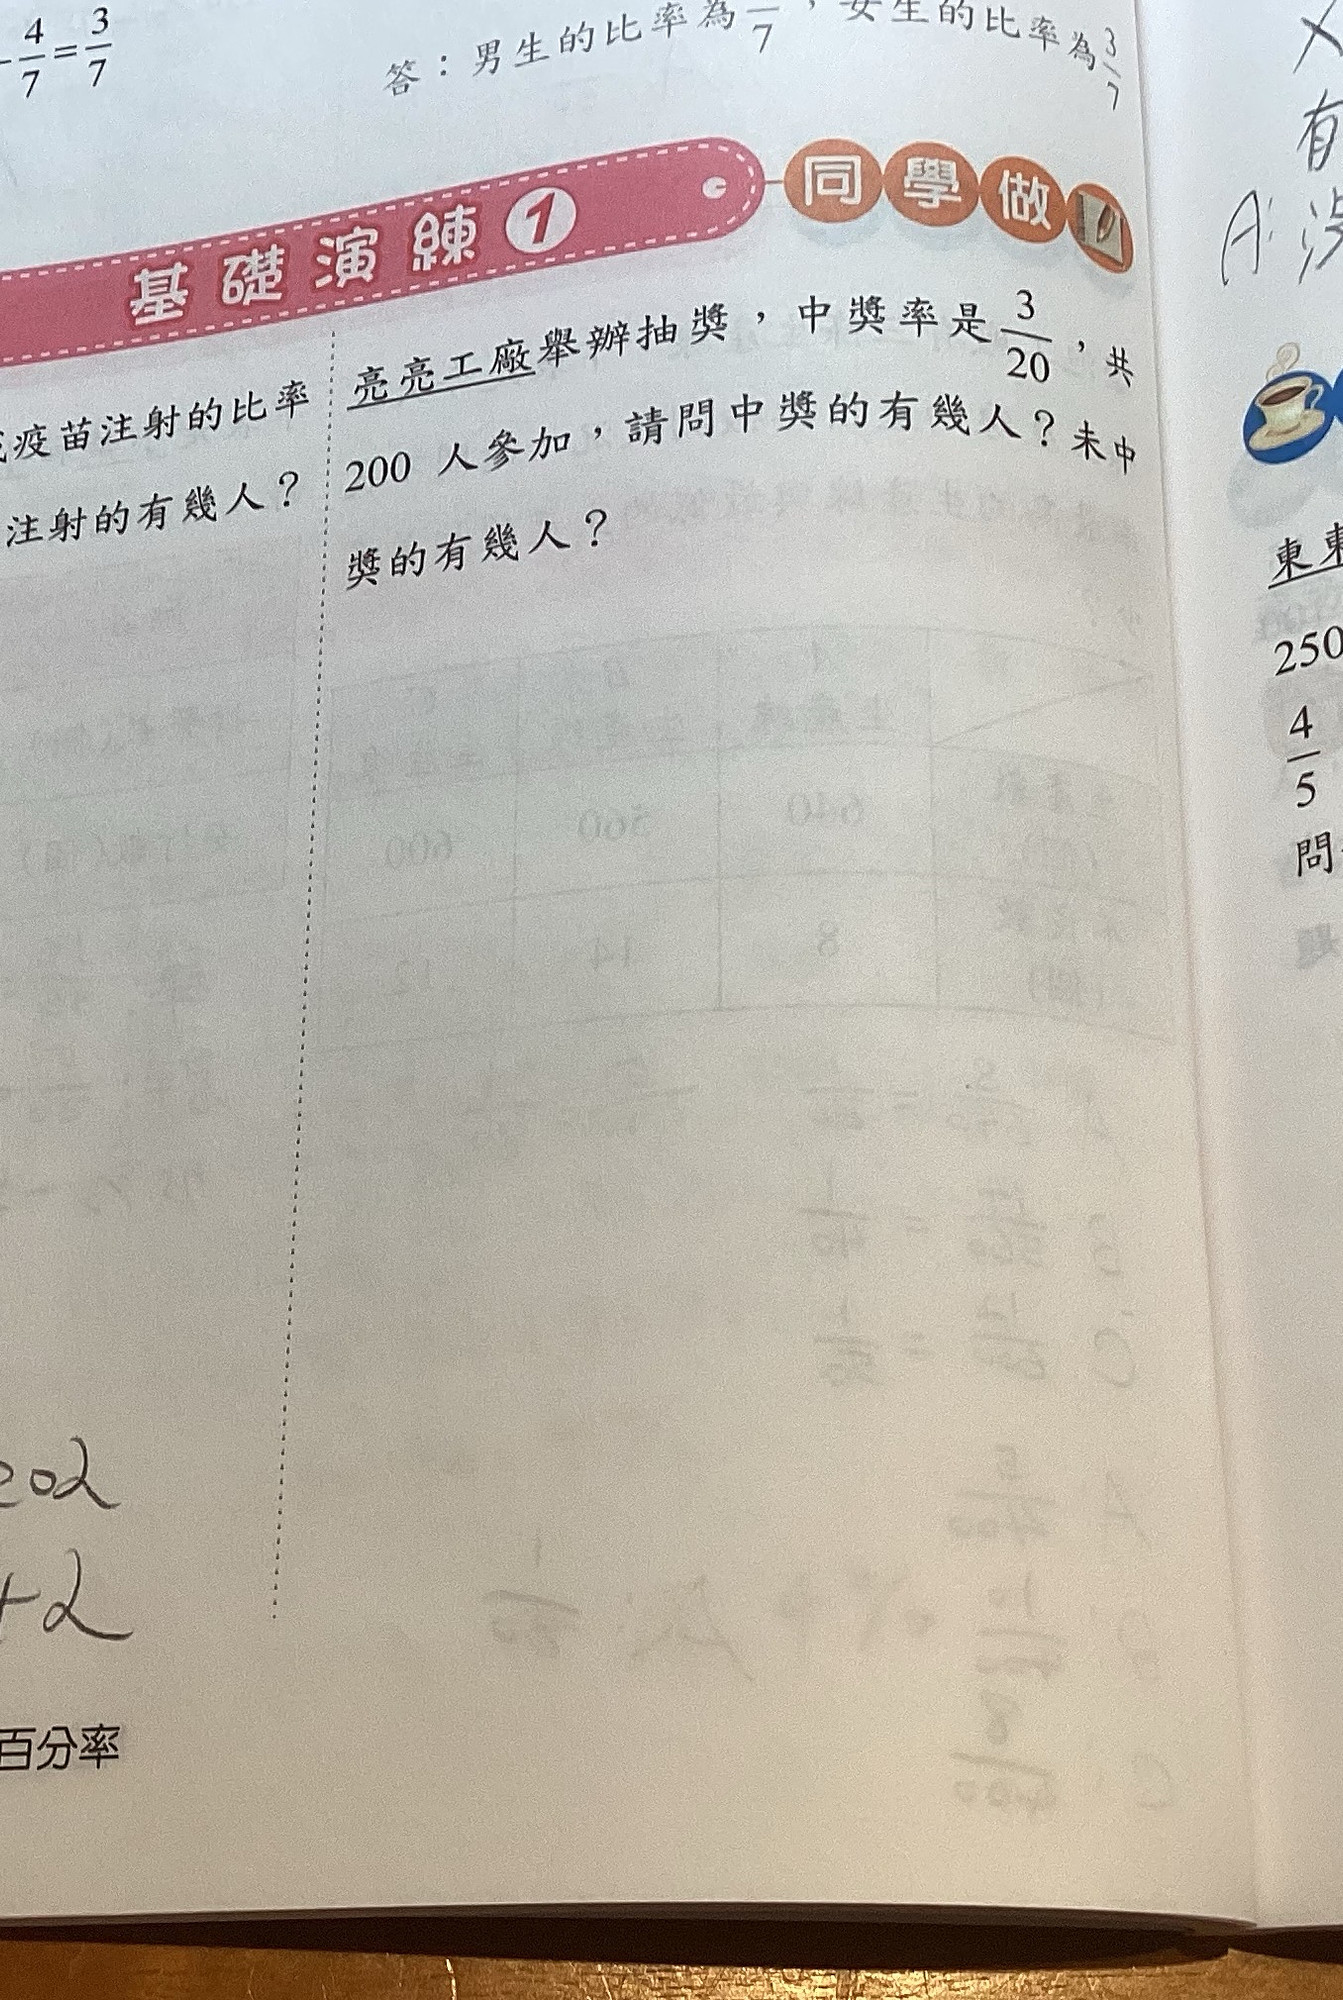 4/7=3/7
答：男生的比率為 /7，女生的比率為3/7
基礎演練1
同學做
疫苗注射的比率
注射的有幾人？
亮亮工廠舉辦抽獎，中獎率是3/20，共
200 人參加，請問中獎的有幾人？未中
獎的有幾人？
202
+2
百分率
有
A:
東
250
4/5
問